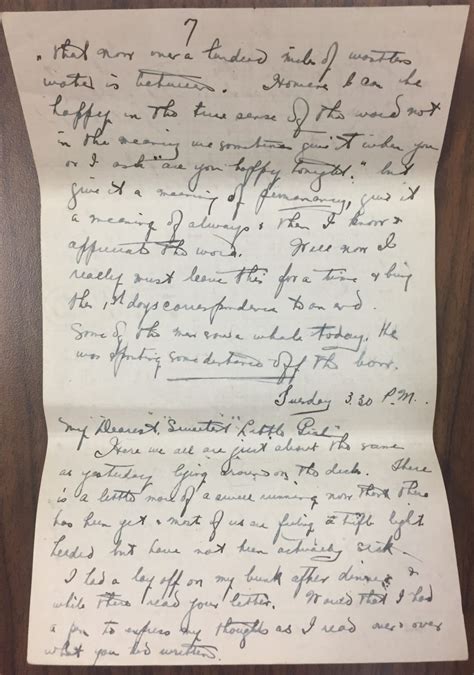 7
that now over a hundred miles of
water is between. However I can be
happy in the true sense of the word not
in the meaning we sometimes give it when you
or I ask "are you happy tonight." but
give it a meaning of permanency, give it
a meaning of always & then I know &
appreciate the word. Well now I
really must leave this for a time & bring
this 1st days correspondence to an end.
Some of the men saw a whale today. He
was spouting some distance off the bow.
Tuesday 3.30 P.M.
My "Dearest" "Sweetest" "Little Girl"
Here we all are just about the same
as yesterday lying around on the deck. There
is a little more of a swell running now than there
has been yet & most of us are feeling a trifle light
headed but have not been actually sick.
I had a lay off on my bunk after dinner &
while there read your letter. Would that I had
a pen to express my thoughts as I read over & over
what you had written.